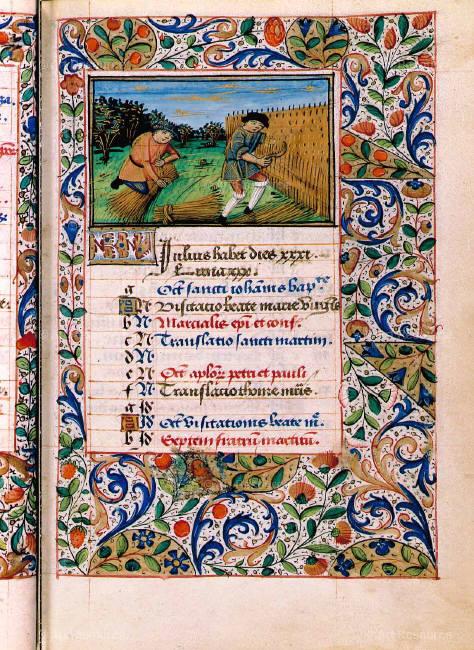 KL Iulius habet dies xxxi.
Luna xxx.
g Oct̄ sancti iohānis bap̄te
A N Visitatio beate marie virgīs
b N Marcialis epi et conf.
c N Translatio sancti martini.
d N
e N Oct̄ aplo℞ petri et pauli
f N Translacio thome m̄is.
g Id
A Id Oct̄ Visitationis beate m̄.
b Id Septem fratrū martirū.